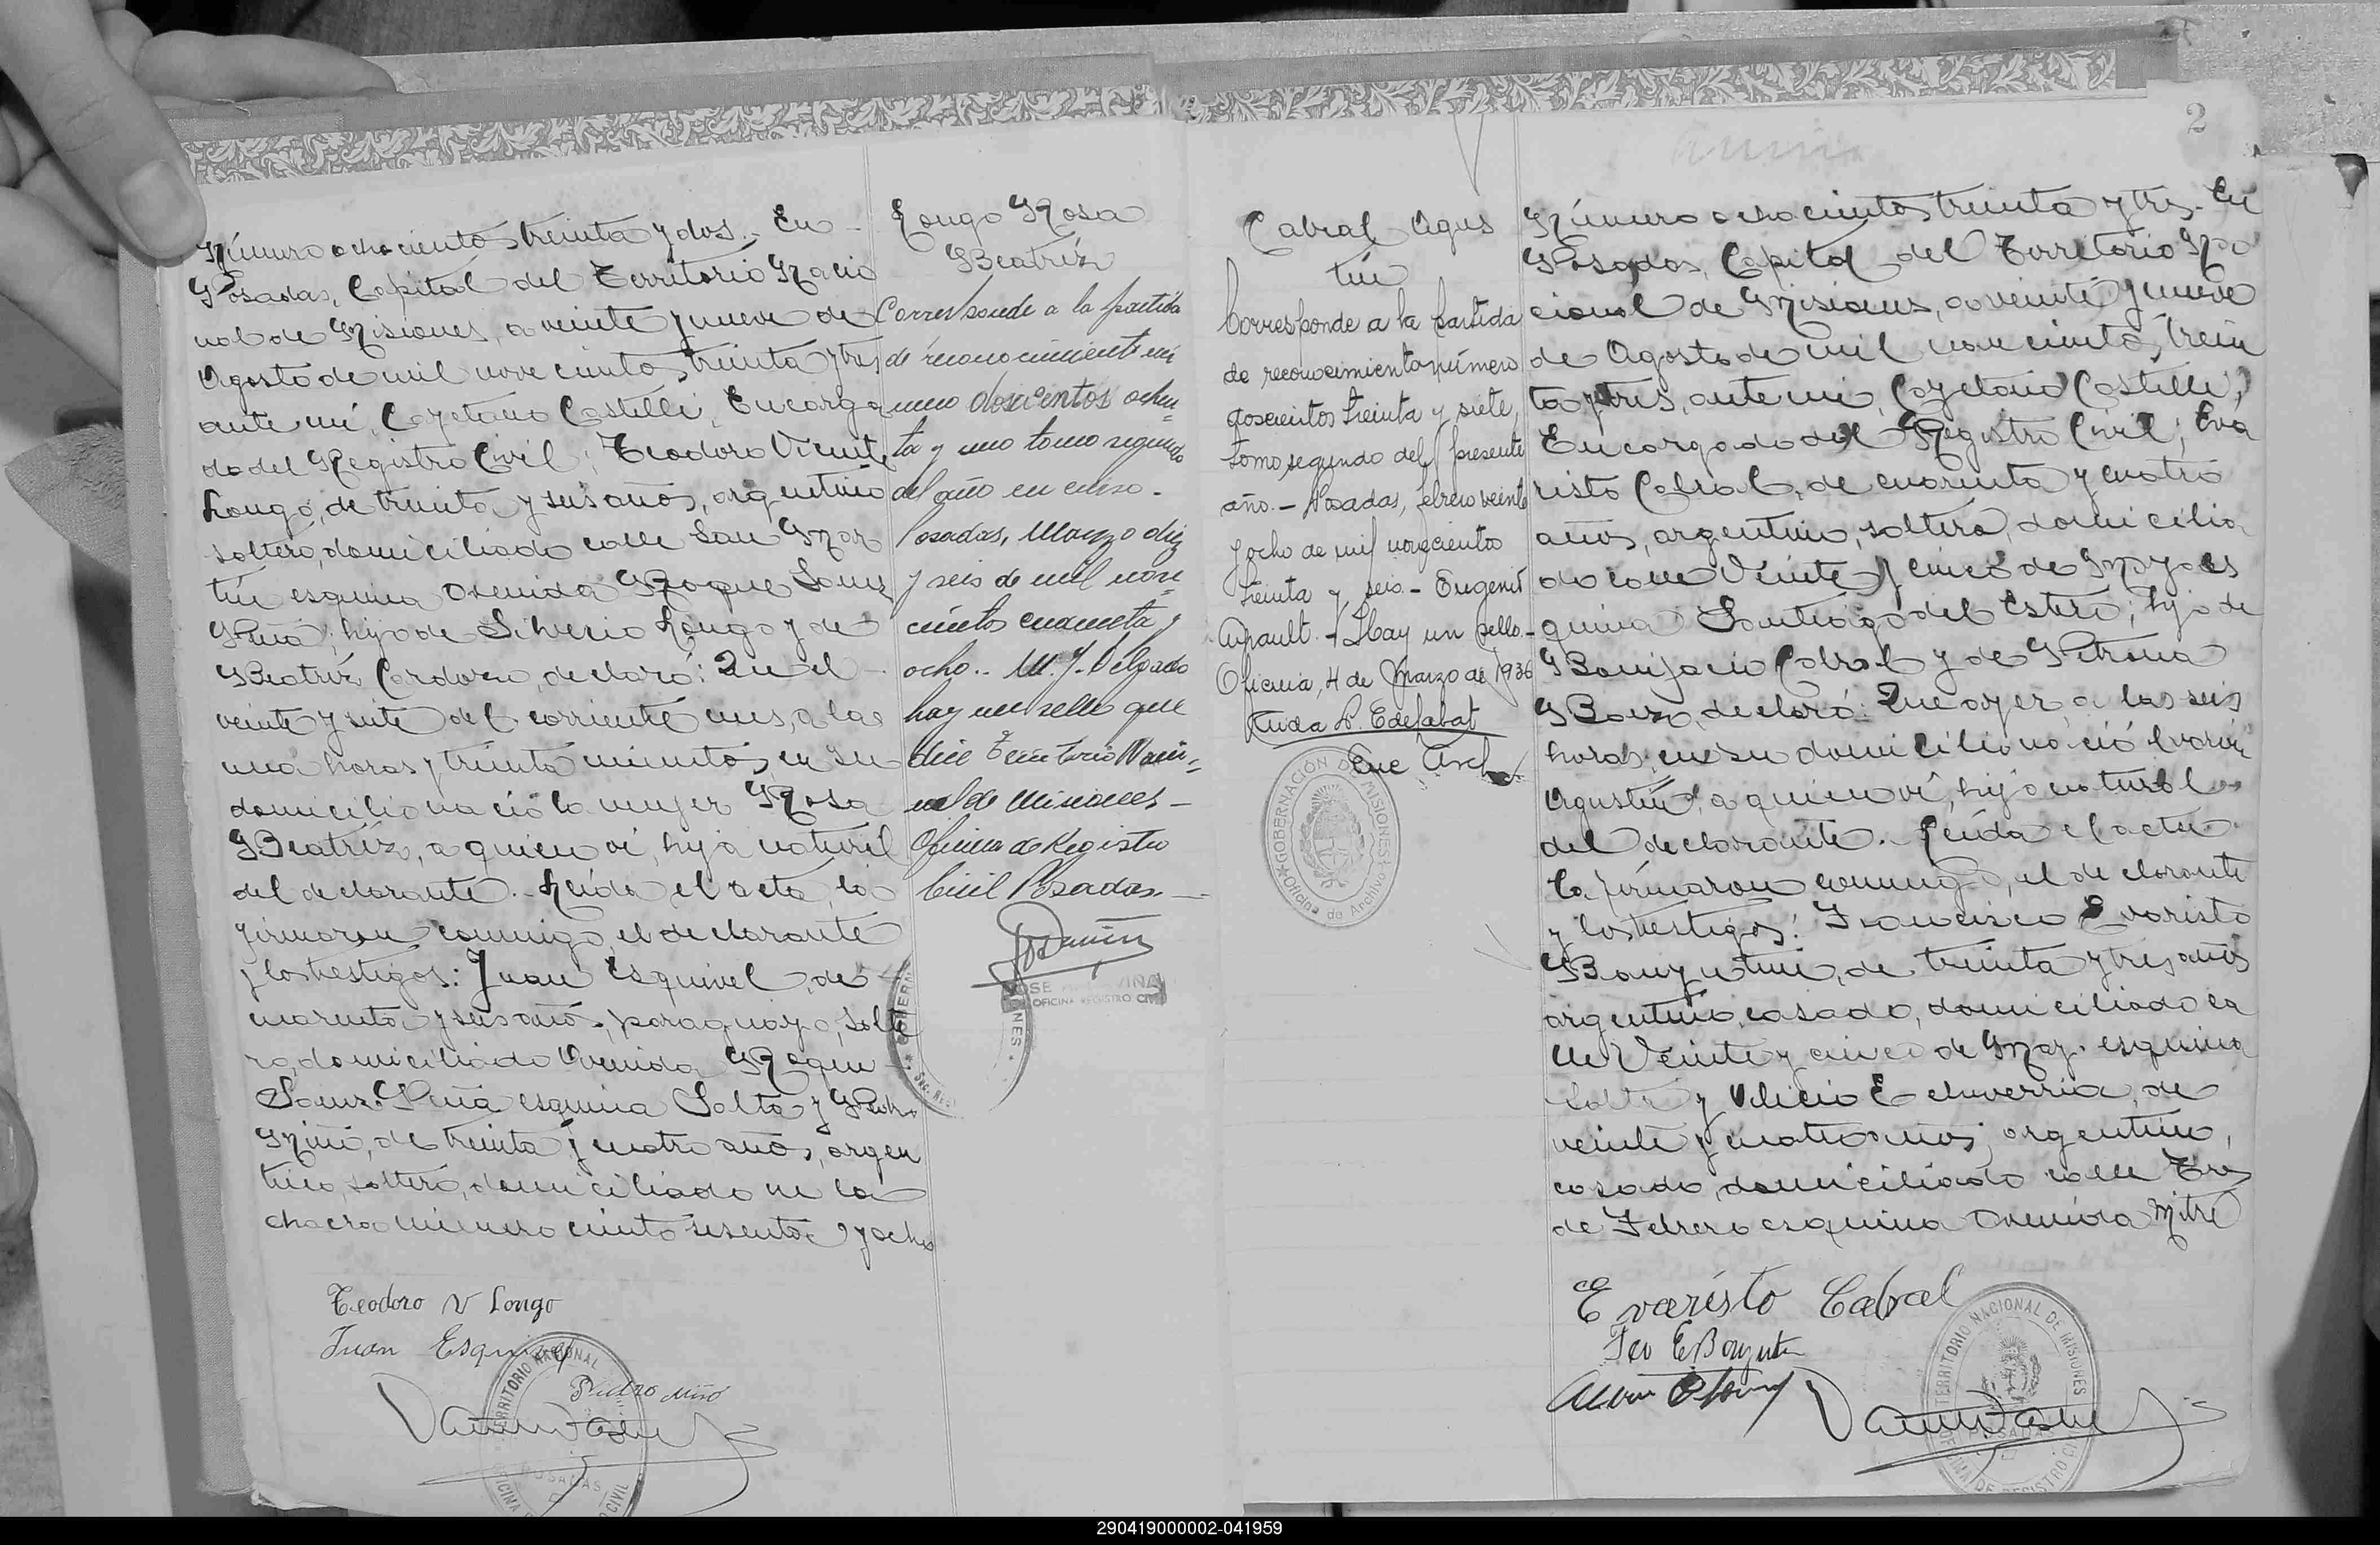 Número ochocientos treinta y dos.- En
Posadas, Capital del Territorio Nacio
nal de Misiones, a veinte y nueve de
Agosto de mil novecientos treinta y tres
ante mí, Cayetano Castelli, Encarga
do del Registro Civil; Teodoro Vicente
Longo, de treinta y seis años, argentino
soltero, domiciliado calle San Mar
tín esquina Avenida Roque Saenz
Peña; hijo de Silverio Longo y de
Beatríz Cardozo, declaró: Que el
veinte y siete del corriente mes, a las
una horas y treinta minutos, en su
domicilio nació la mujer Rosa
Beatríz, a quien ví, hija natural
del declarante.- Leída el acta, la
firmaron conmigo, el declarante
y los testigos: Juan Esquivel, de
cuarenta y seis años, paraguayo, solte
ro, domiciliado Avenida Roque
Saenz Peña esquina Salta y Pedro
Miño, de treinta y cuatro años, argen
tino, soltero, domiciliado en la
chacra número ciento sesenta y ocho
Teodoro V Longo
Juan Esquivel
Pedro Miño
TERRITORIO NACIONAL
POSADAS
Longo Rosa
Beatríz
Corresponde a la partida
de reconocimiento nú
mero doscientos ochen
ta y uno tomo segundo
del año en curso.-
Posadas, Marzo diez
y seis de mil nove
cientos cuarenta y
ocho.- M. J. Delgado
hay un sello que
dice Territorio Nacio
nal de Misiones -
Oficina de Registro
Civil Posadas.-
OFICINA REGISTRO CIVIL
2
Cabral Agus
tín
Corresponde a la partida
de reconocimiento número
doscientos treinta y siete,
tomo segundo del presente
año.- Posadas, febrero veinte
y ocho de mil novecientos
treinta y seis.- Eugenio
Arnault.- Hay un sello.-
Oficina, 4 de Marzo de 1936
Enc Arch
GOBERNACIÓN DE MISIONES
Oficina de Archivo
Número ochocientos treinta y tres.- En
Posadas, Capital del Territorio Na
cional de Misiones, a veinte y nueve
de Agosto de mil novecientos trein
ta y tres, ante mí, Cayetano Castelli,
Encargado del Registro Civil; Eva
risto Cabral, de cuarenta y cuatro
años, argentino, soltero, domicilia
do calle Veinte y cinco de Mayo es
quina Santiago del Estero; hijo de
Bonifacio Cabral y de Petrona
Baez, declaró: Que ayer, a las seis
horas, en su domicilio nació el varón
Agustín, a quien ví, hijo natural
del declarante.- Leída el acta
la firmaron conmigo, el declarante
y los testigos: Francisco Evaristo
de treinta y tres años
argentino, casado, domiciliado ca
lle Veinte y cinco de Mayo esquina
Salta y Alicio Echeverria, de
veinte y cuatro años, argentino,
casado, domiciliado calle Tres
de Febrero esquina Avenida Mitre
Evaristo Cabral
TERRITORIO NACIONAL DE MISIONES
POSADAS
OFICINA DE REGISTRO CIVIL
290419000002-041959